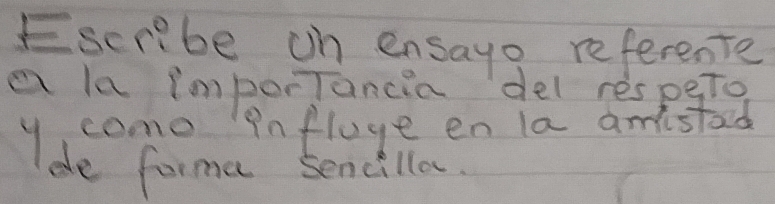 Escribe un ensayo referente
a la importancia del respeto
y como influye en la amistad
de forma sencilla.